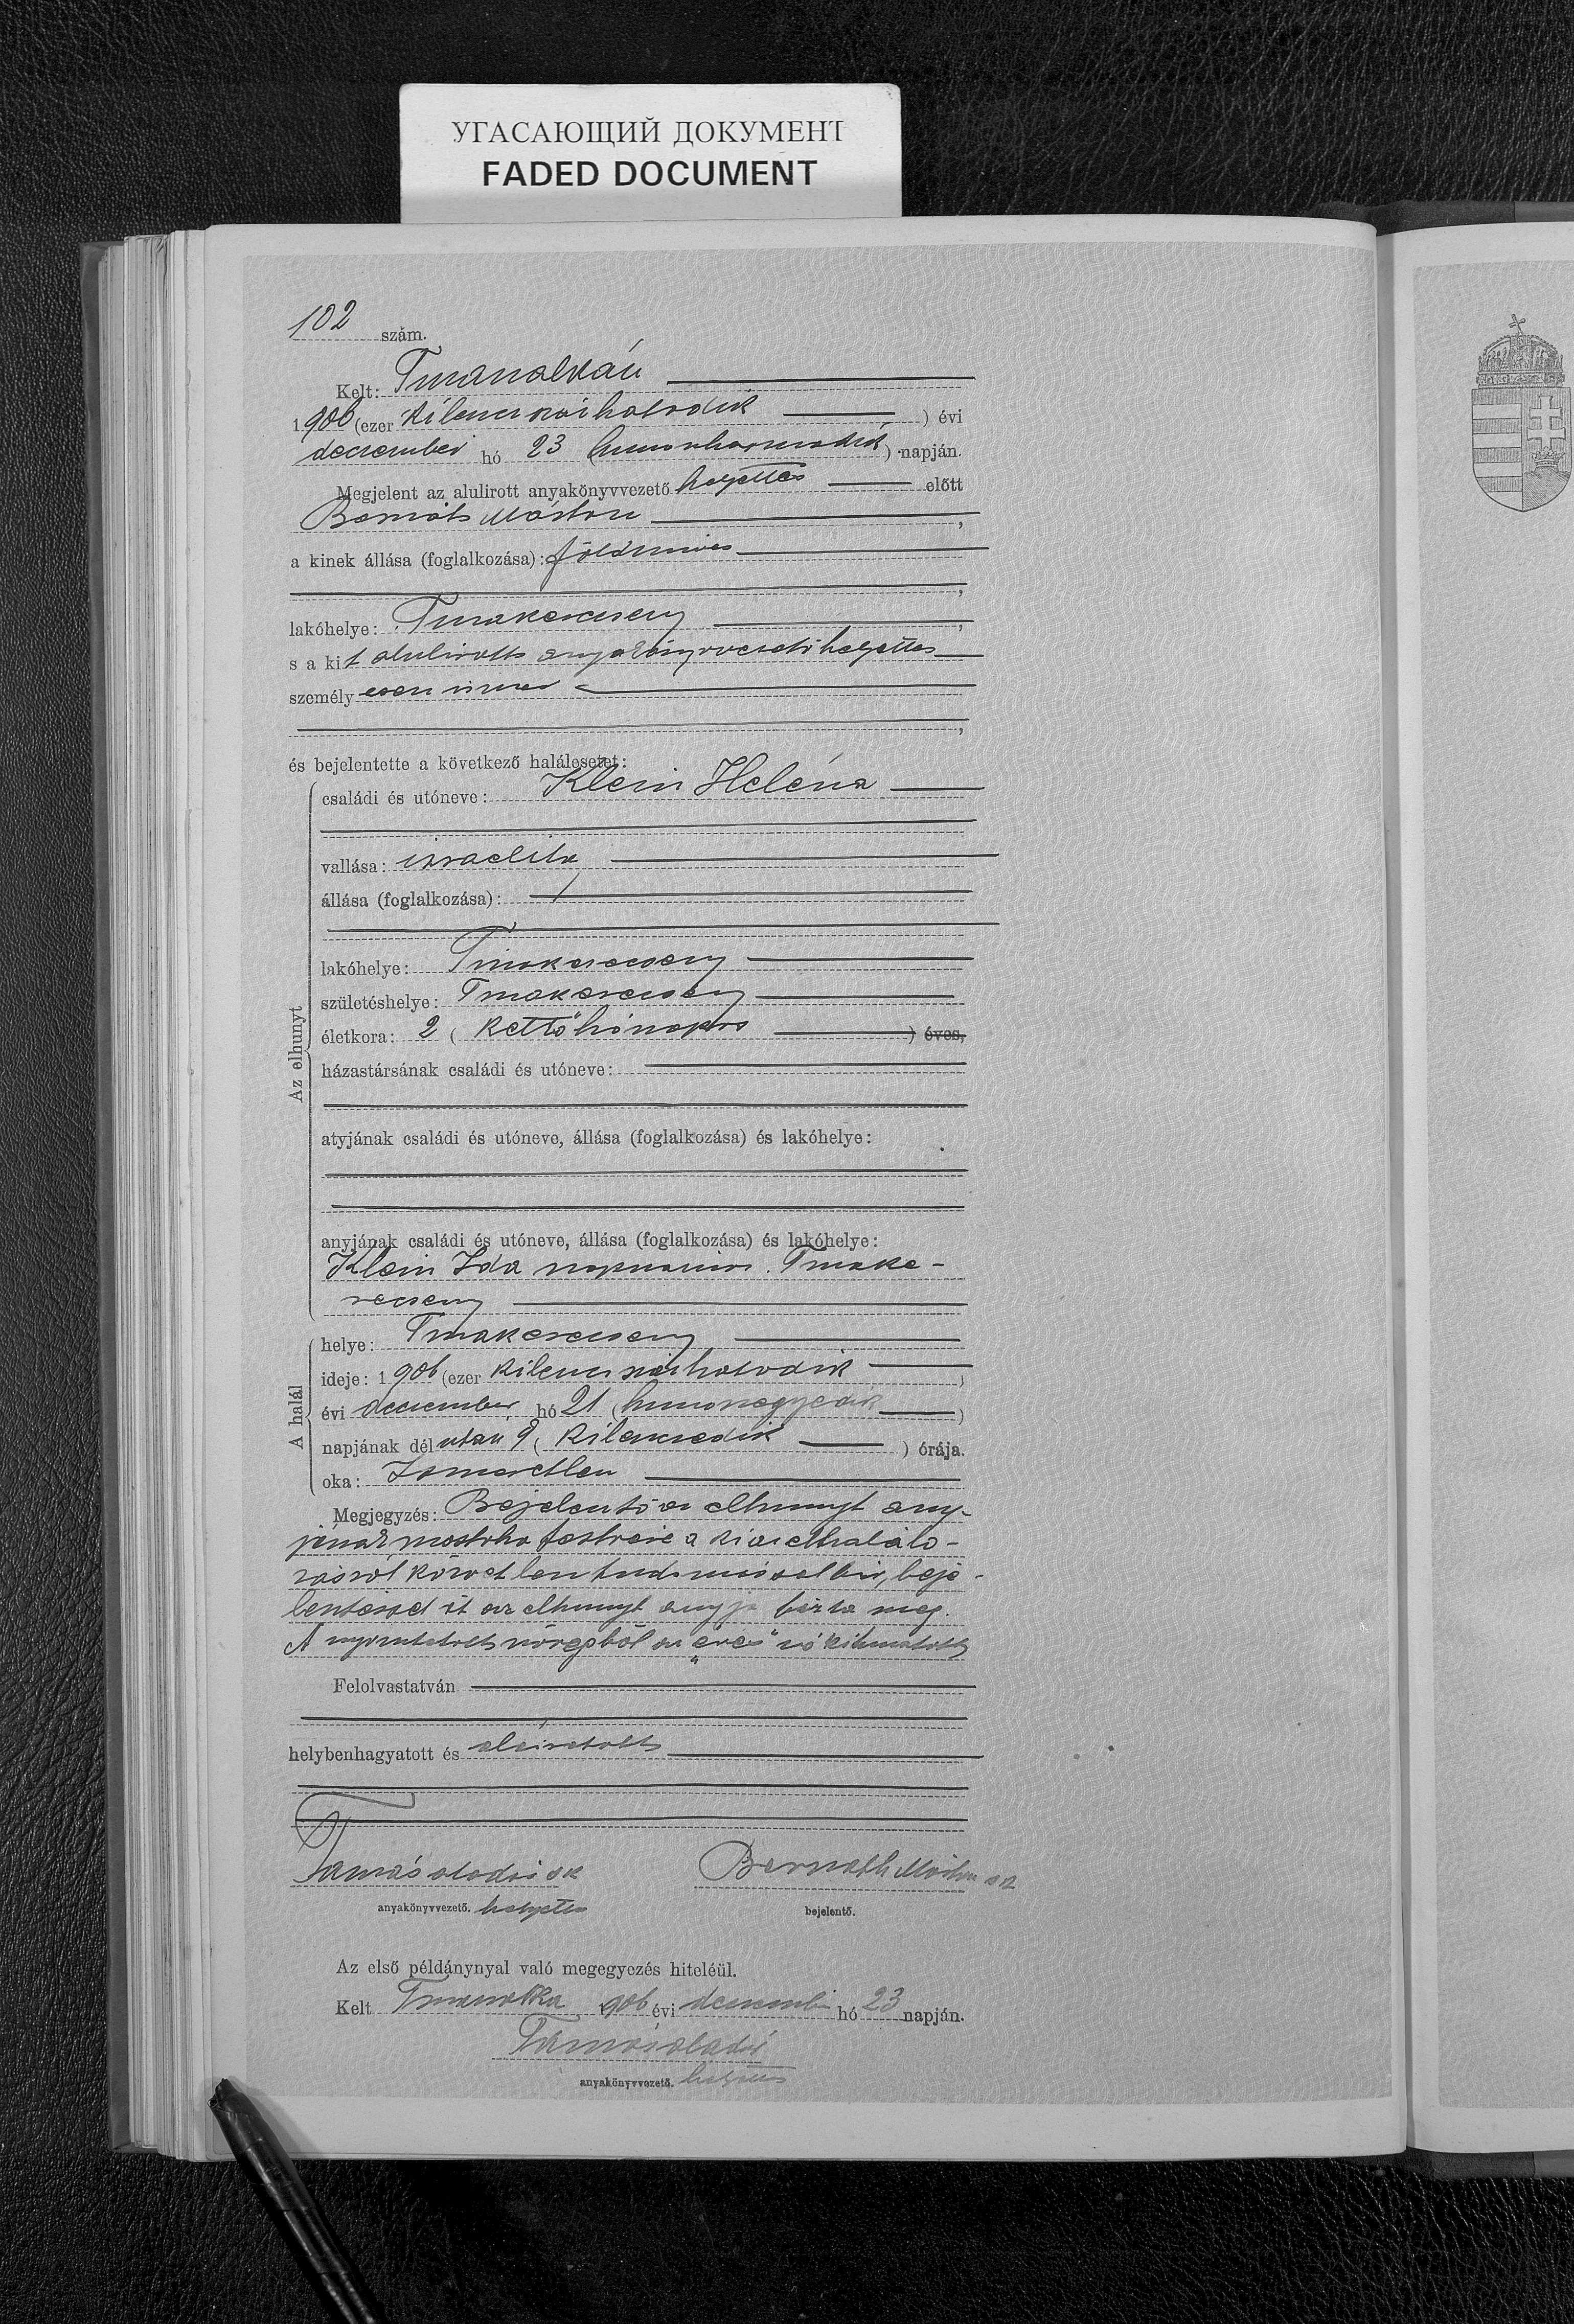 УГАСАЮЩИЙ ДОКУМЕНТ
FADED DOCUMENT
102 szám.
Kelt:
1906 (ezer kilencszázhatodik) évi
december hó 23 (huszonharmadik) napján.
Megjelent az alulirott anyakönyvvezető helyettes előtt
Bernáth Márton,
a kinek állása (foglalkozása): földmives
,
lakóhelye: Tiszakerecseny,
s a kit alulirott anyakönyvvezető helyettes
személyesen ismer
,
és bejelentette a következő halálesetet:
Az elhunyt
családi és utóneve: Klein Heléna
vallása: izraelita
állása (foglalkozása):
lakóhelye: Tiszakerecseny
születéshelye: Tiszakerecseny
életkora: 2 (kettő hónapos) éves,
házastársának családi és utóneve:
atyjának családi és utóneve, állása (foglalkozása) és lakóhelye:
anyjának családi és utóneve, állása (foglalkozása) és lakóhelye:
Klein Ida napszámos Tiszake-
recseny
A halál
helye: Tiszakerecseny
ideje: 1906 (ezer kilencszázhatodik)
évi december hó 21 (
napjának dél után 9 (kilencedik) órája.
oka: Ismeretlen
Megjegyzés: Bejelentő az elhunyt any-
jának mostoha testvére a ki az elhalálo-
zásról közvetlen tudomással bir, beje-
lentéssel őt az elhunyt anyja bizta meg.
A nyomtatott szövegből az „éves" szó kihuzatott
Felolvastatván
helybenhagyatott és aláiratott
Tamás Aladár sk
anyakönyvvezető. helyettes
Bernáth Márton sk
bejelentő.
Az első példánynyal való megegyezés hiteléül.
Kelt 906 évi december hó 23 napján.
Tamás Aladár
anyakönyvvezető. helyettes